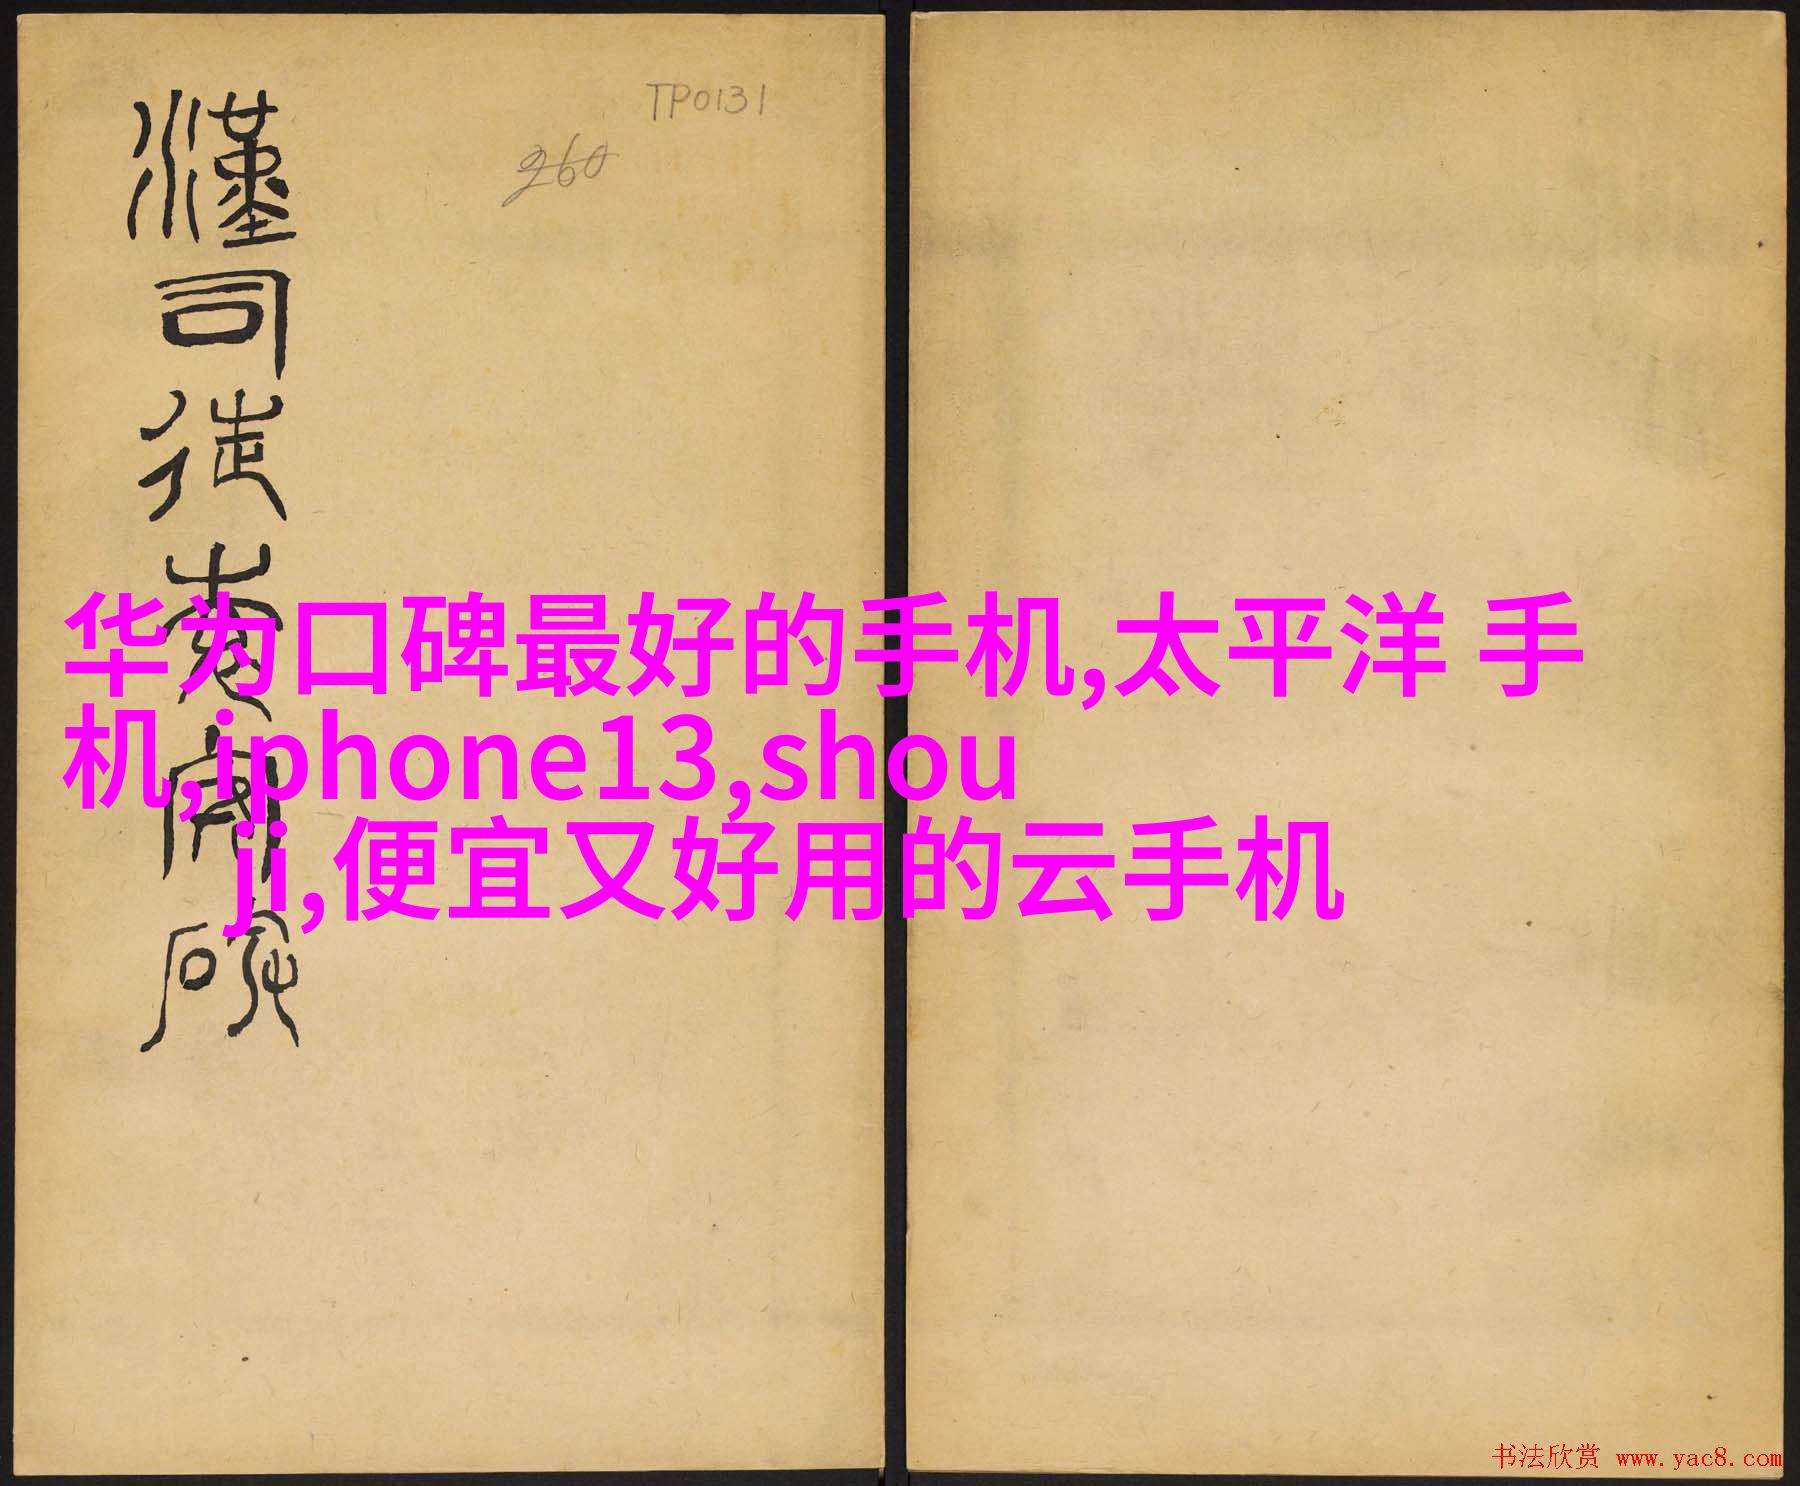 漢司徒袁安碑
TP0131
260
华为口碑最好的手机,太平洋 手
机,iphone13,shou
ji,便宜又好用的云手机
书法欣赏 www.yac8.com